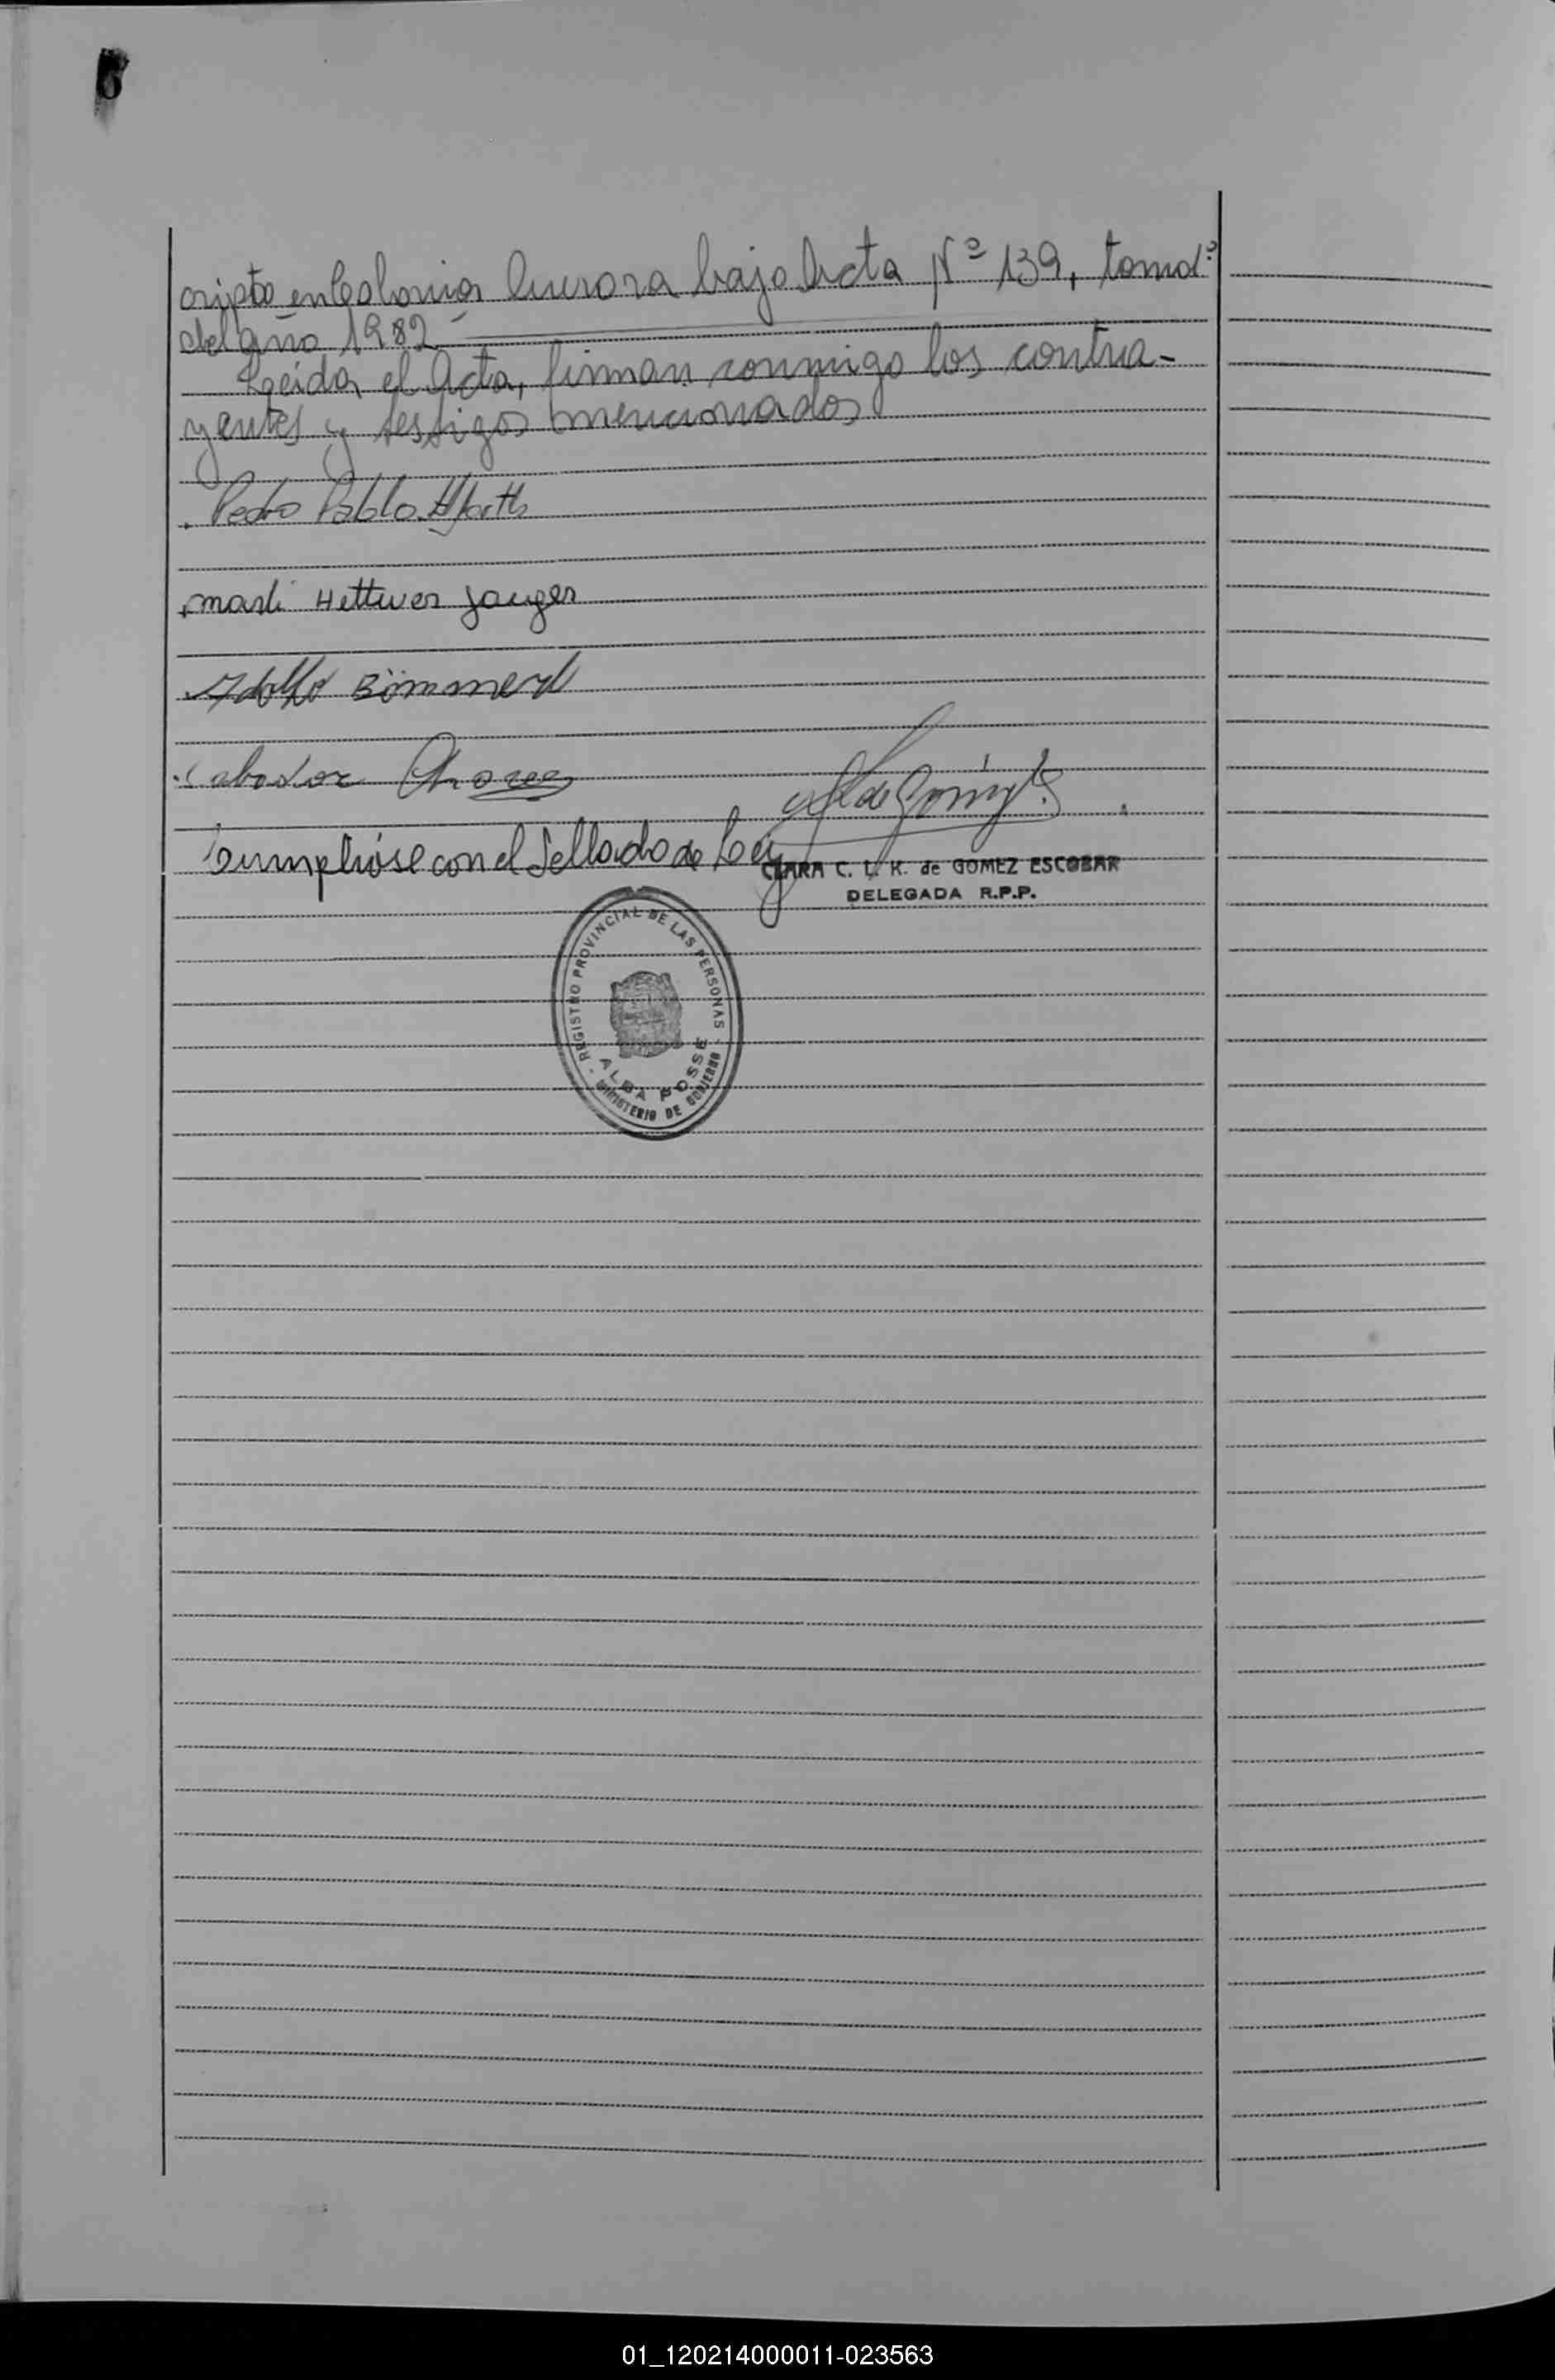 cripto en Colonia Aurora bajo Acta Nº 139, tomo 1º
del año 1982.
Leída el Acta, firman conmigo los contra-
yentes y testigos mencionados
Pedro Pablo
Marli Hettwer Jauger
Adolfo Bömmerd
Chavez
Cumplióse con el Sellado de Ley
CLARA C. L. K. de GOMEZ ESCOBAR
DELEGADA R.P.P.
REGISTRO PROVINCIAL DE LAS PERSONAS
ALBA POSSE
MINISTERIO DE GOBIERNO
01_120214000011-023563